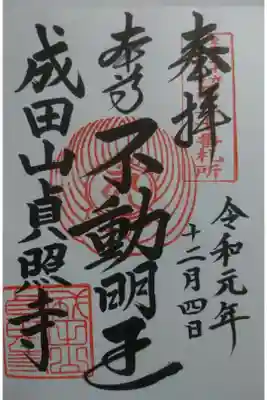 奉拝
令和元年
十二月四日
本尊
不動明王
成田山貞照寺